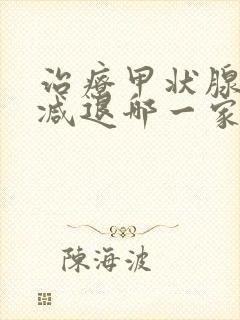 治疗甲状腺
减退哪一家
陳海波